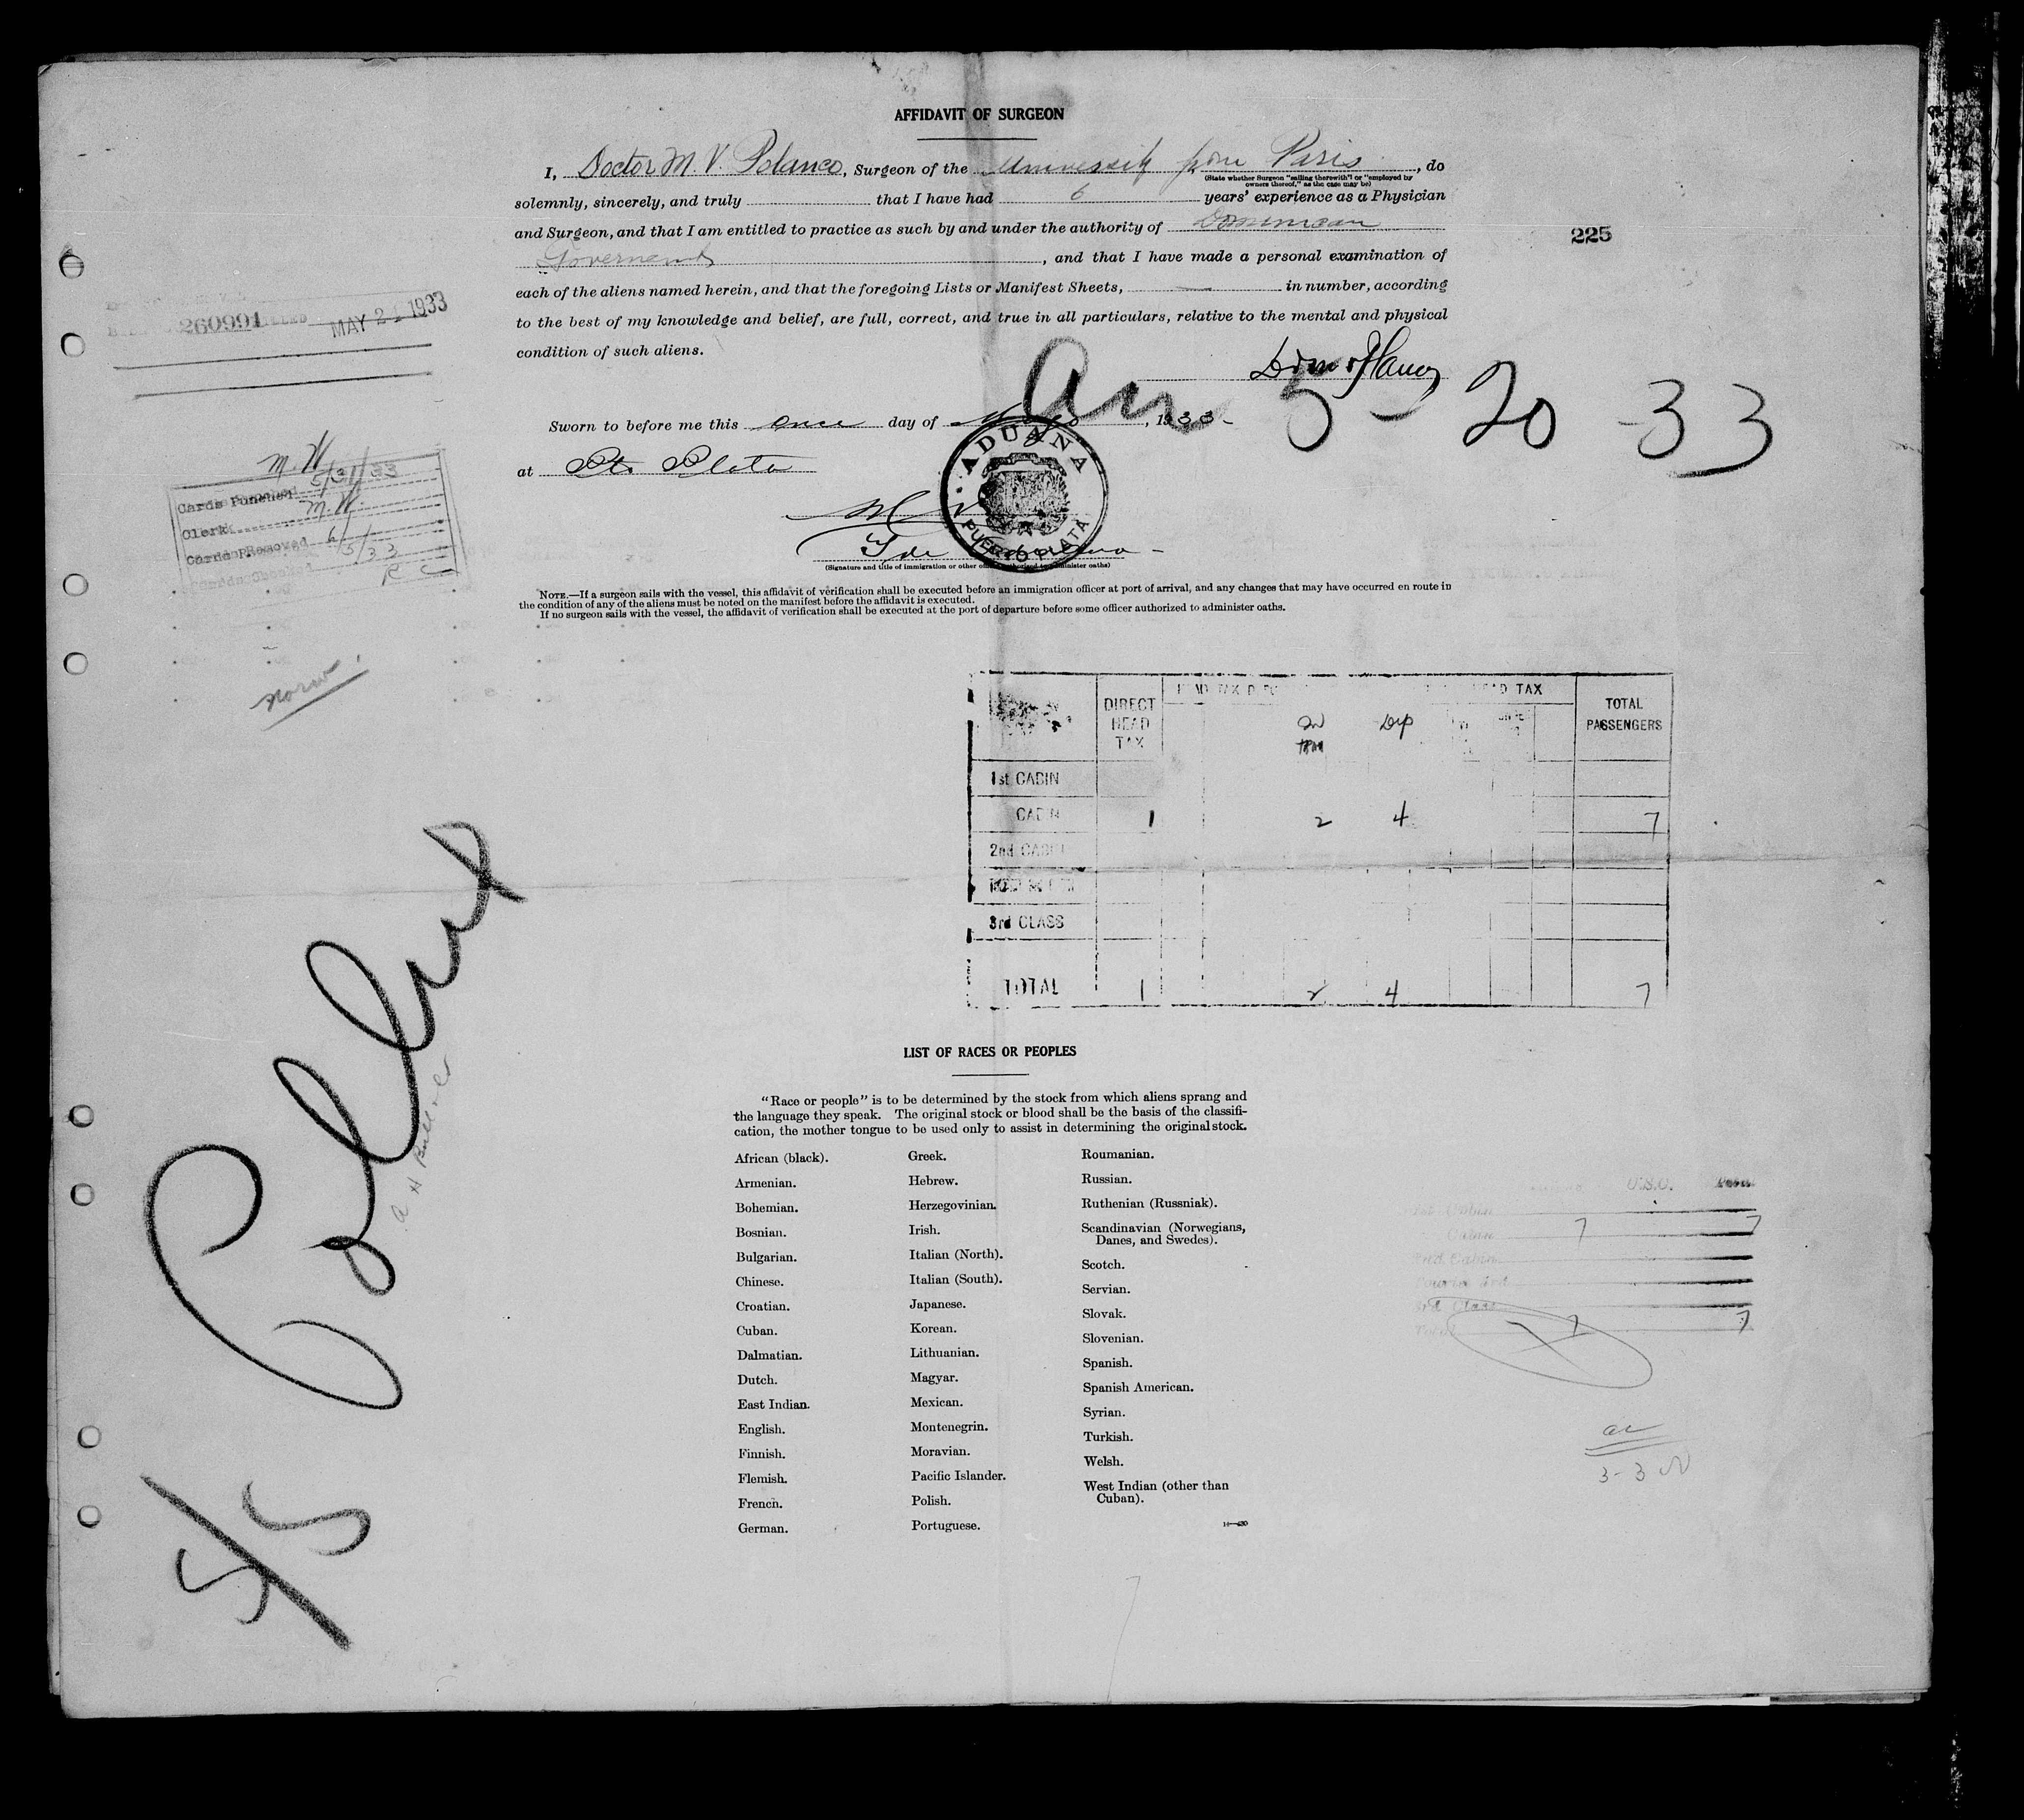 AFFIDAVIT OF SURGEON
I, Doctor M. V. Polanco, Surgeon of the University from Paris, do
(State whether Surgeon "sailing therewith" or "employed by
owners thereof," as the case may be)
solemnly, sincerely, and truly that I have had 6 years' experience as a Physician
and Surgeon, and that I am entitled to practice as such by and under the authority of Dominican
Governement, and that I have made a personal examination of
each of the aliens named herein, and that the foregoing Lists or Manifest Sheets, — in number, according
to the best of my knowledge and belief, are full, correct, and true in all particulars, relative to the mental and physical
condition of such aliens.
225
260991 MAY 21 1933
Arr 5 - 20 - 33
Sworn to before me this once day of Mayo, 1933-
at Pto Plata
ADUANA
PUERTO PLATA
(Signature and title of immigration or other officer authorized to administer oaths)
M.W. 5/31/33
Cards Punched
Clerk M.W.
Cards Removed 6/5/33
R C
NOTE.—If a surgeon sails with the vessel, this affidavit of verification shall be executed before an immigration officer at port of arrival, and any changes that may have occurred en route in
the condition of any of the aliens must be noted on the manifest before the affidavit is executed.
If no surgeon sails with the vessel, the affidavit of verification shall be executed at the port of departure before some officer authorized to administer oaths.
Norw
DIRECT HEAD TAX HEAD TAX TOTAL PASSENGERS
1st CABIN
CABIN 1 2 4 7
2nd CABIN
3rd CLASS
TOTAL 1 2 4 7
S/S Colbert
LIST OF RACES OR PEOPLES
"Race or people" is to be determined by the stock from which aliens sprang and
the language they speak. The original stock or blood shall be the basis of the classifi-
cation, the mother tongue to be used only to assist in determining the original stock.
African (black).
Armenian.
Bohemian.
Bosnian.
Bulgarian.
Chinese.
Croatian.
Cuban.
Dalmatian.
Dutch.
East Indian.
English.
Finnish.
Flemish.
French.
German.
Greek.
Hebrew.
Herzegovinian.
Irish.
Italian (North).
Italian (South).
Japanese.
Korean.
Lithuanian.
Magyar.
Mexican.
Montenegrin.
Moravian.
Pacific Islander.
Polish.
Portuguese.
Roumanian.
Russian.
Ruthenian (Russniak).
Scandinavian (Norwegians,
Danes, and Swedes).
Scotch.
Servian.
Slovak.
Slovenian.
Spanish.
Spanish American.
Syrian.
Turkish.
Welsh.
West Indian (other than
Cuban).
U.S.C.
Cabin 7 7
3rd Class
7 7